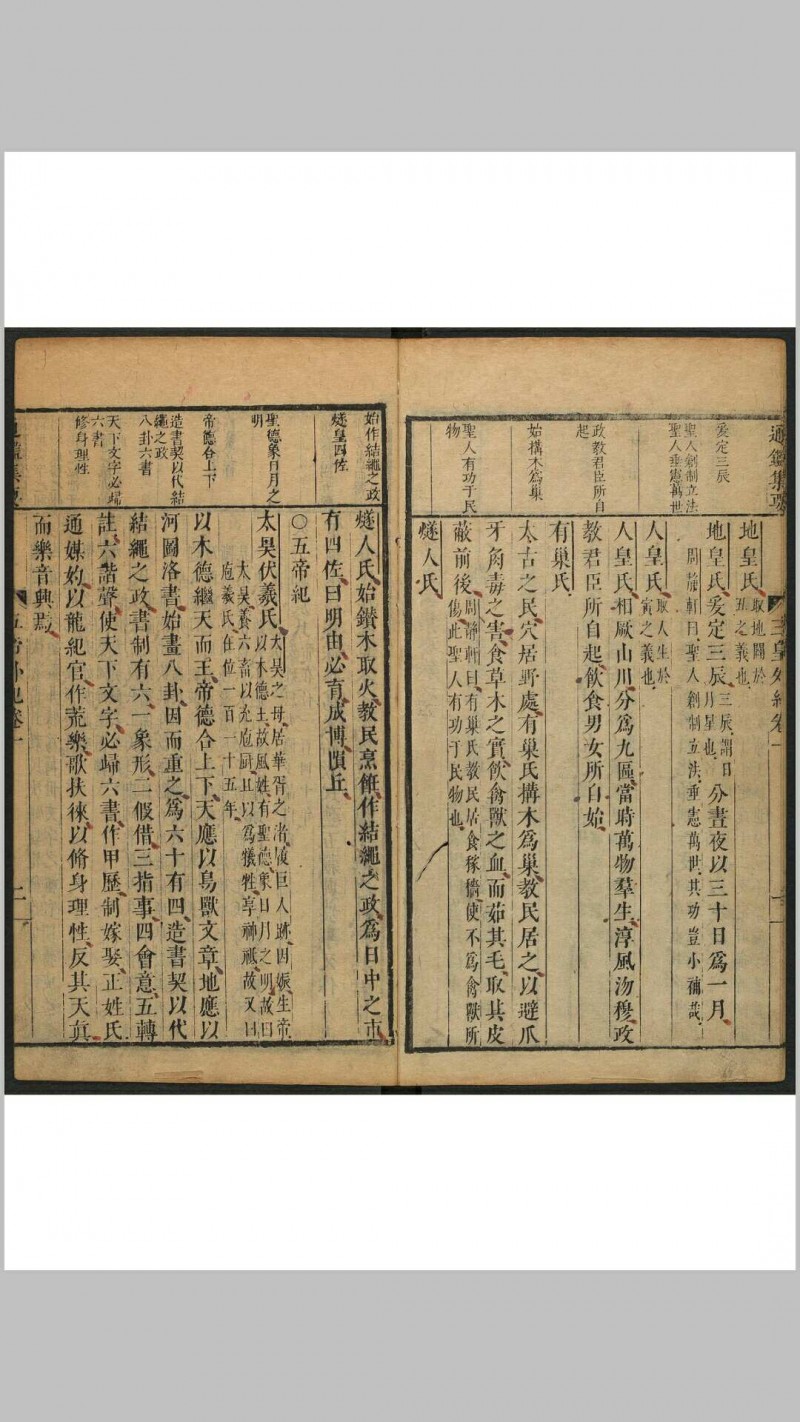 通鑑集要
爰定三辰
聖人創制立法
聖人垂憲萬世
政教君臣所自
起
始構木爲巢
聖人有功于民
物
三皇外紀卷一
地皇氏取地闢於
丑之義也
地皇氏爰定三辰三辰謂日
月星也分晝夜以三十日爲一月
周靜軒曰聖人創制立法垂憲萬世其功豈小補哉
人皇氏取人生於
寅之義也
人皇氏相厥山川分爲九區當時萬物羣生淳風沕穆政
教君臣所自起飲食男女所自始
有巢氏
太古之民穴居野處有巢氏構木爲巢教民居之以避爪
牙角毒之害食草木之實飲禽獸之血而茹其毛取其皮
蔽前後周靜軒曰有巢氏教民居食稼穡使不爲禽獸所
傷此聖人有功于民物也
燧人氏
始作結繩之政
燧皇四佐
聖德象日月之
明
帝德合上下
造書契以代結
繩之政
八卦六書
天下文字必歸
六書
修身理性
燧人氏始鑚木取火教民烹飪作結繩之政爲日中之市
有四佐曰明由必育成博隕丘
○五帝紀
太昊伏羲氏太昊之母居華胥之渚履巨人跡因娠生帝
以木德王故風姓有聖德象日月之明故曰
太昊養六畜以充庖厨且以爲犧牲享神祗故又曰
庖羲氏在位一百一十五年
以木德繼天而王帝德合上下天應以鳥獸文章地應以
河圖洛書始畫八卦因而重之爲六十有四造書契以代
結繩之政書制有六一象形二假借三指事四會意五轉
註六諧聲使天下文字必歸六書作甲歷制嫁娶正姓氏
通媒妁以龍紀官作荒樂歌扶徠以脩身理性反其天真
而樂音興焉